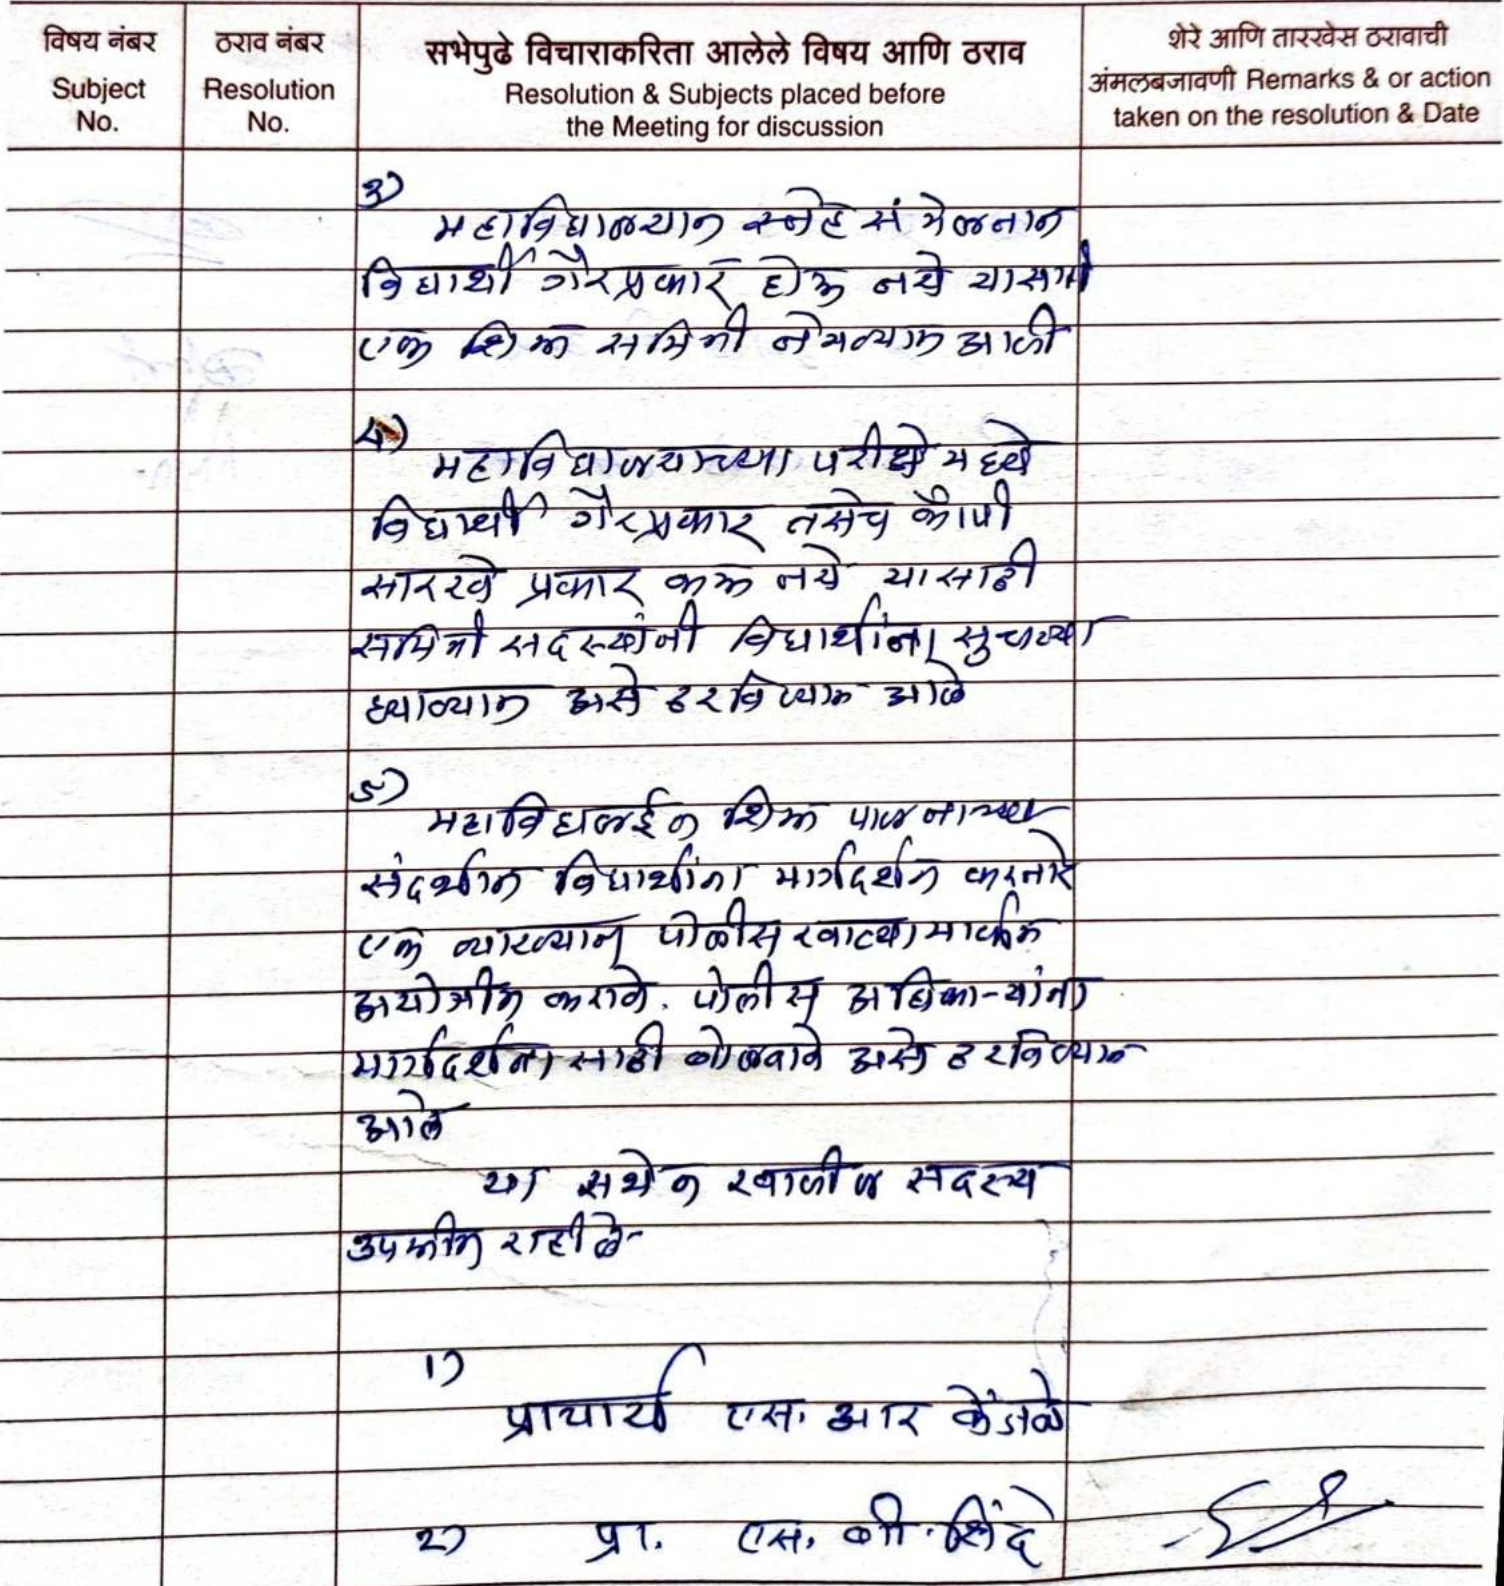 विषय नंबर
Subject
No.
ठराव नंबर
Resolution
No.
सभेपुढे विचाराकरिता आलेले विषय आणि ठराव
Resolution & Subjects placed before
the Meeting for discussion
शेरे आणि तारखेस ठरावाची
अंमलबजावणी Remarks & or action
taken on the resolution & Date
3)
महाविद्यालयात स्नेह संमेलनात
विद्यार्थी गैरप्रकार होऊ नये यासाठी
एक शिस्त समिती नेमण्यात आली
4)
महाविद्यालयाच्या परीक्षे मध्ये
विद्यार्थी गैरप्रकार तसेच कॉपी
सारखे प्रकार करू नये यासाठी
समिती सदस्यांनी विद्यार्थांना सुचना
द्याव्यात असे ठरविण्यात आले
5)
महाविद्यालईन शिस्त पालनाच्या
संदर्भात विद्यार्थांना मार्गदर्शन करनारे
एक व्याख्यान पोळीस खात्या मार्फत
अयोजीत करावे. पोलीस अधिका-यांना
मार्गदर्शना साठी बोलवावे असे ठरविण्यात
आले
या सभेत खालील सदस्य
उपस्थीत राहीले-
1)
प्राचार्य एस. आर
2) प्रा. एस. बी. शिंदे